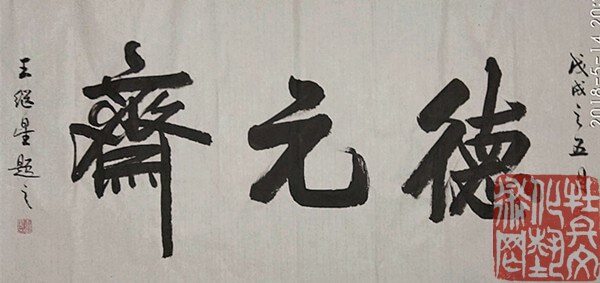 2018-5-14 20:
戊戌之五月
德元齋
王继星题之